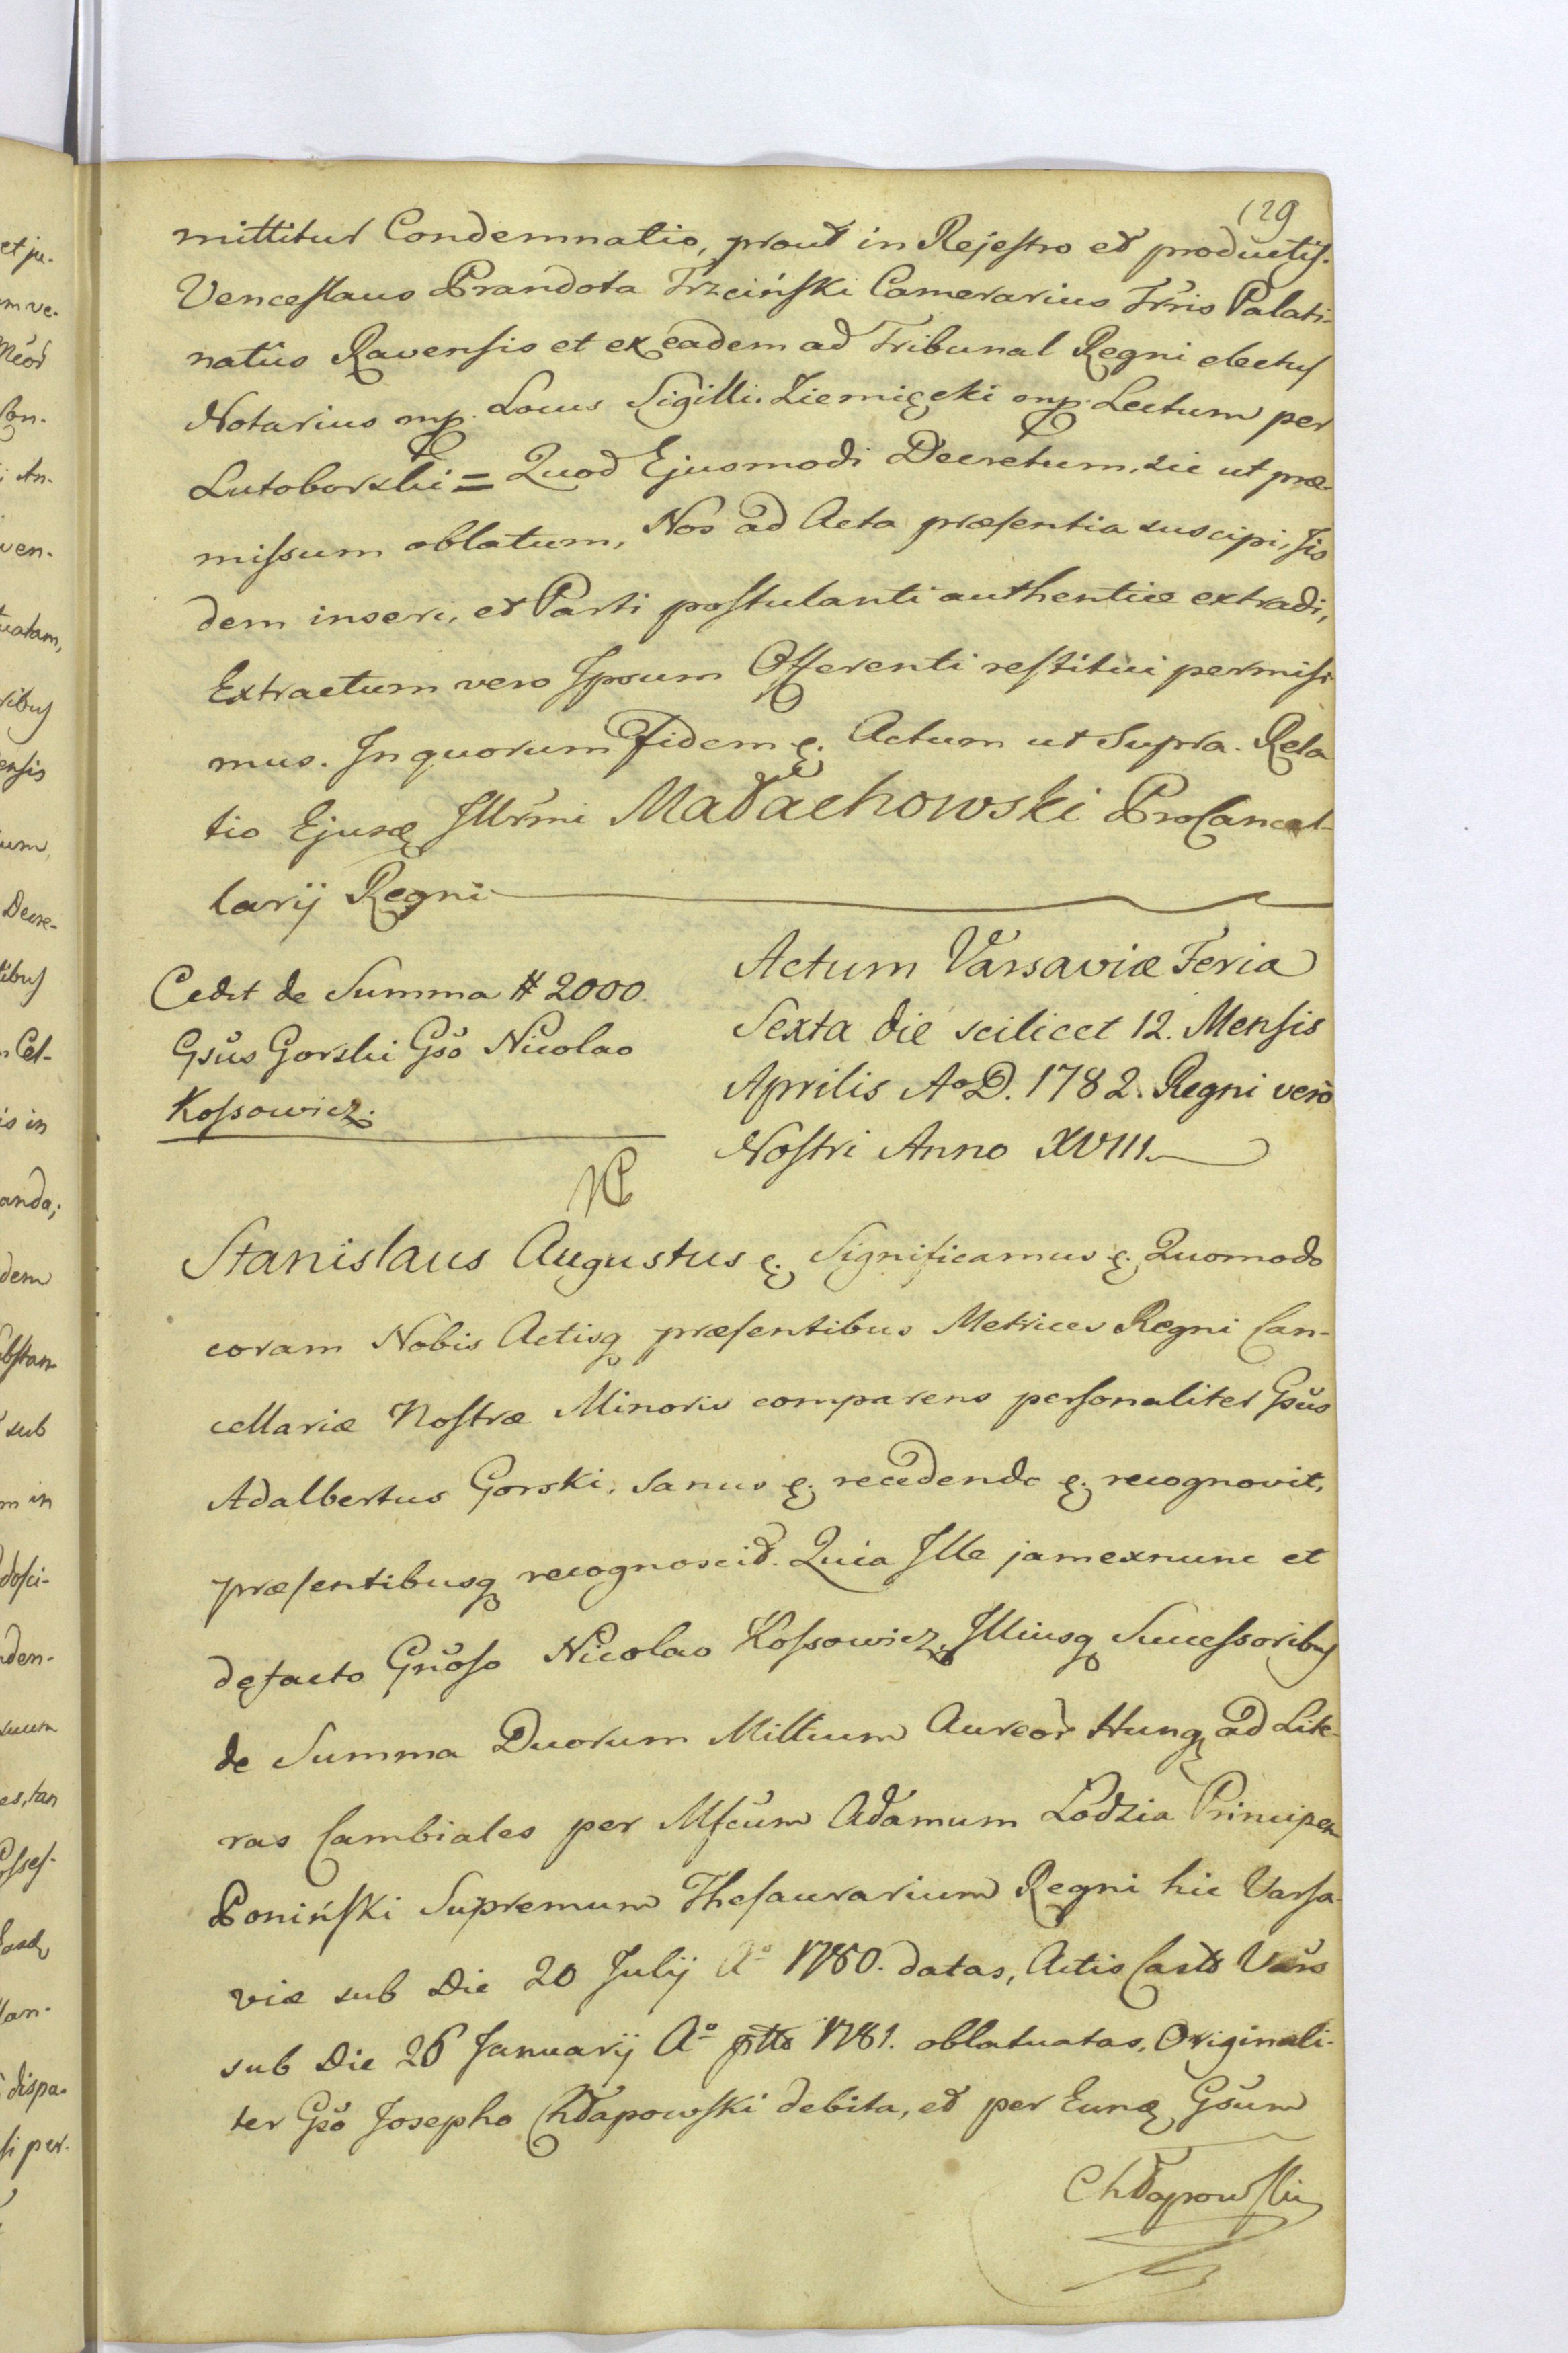 129
mittitur Condemnatio, prout in Rejestro et productis.
Venceslaus Prandota Trzciński Camerarius Trr̃is Palati-
natûs Ravensis et ex eadem ad Tribunal Regni electus
Notarius mp. Locus Sigilli. Ziemięcki mp. Lectum per
Lutoborski = Quod Ejusmodi Decretum, sic ut præ-
missum oblatum, Nos ad Acta præsentia suscipi, Jis
dem inseri, et Parti postulanti authentice extradi,
Extractum vero Ipsum Offerenti restitui permisi
mus. In quorum Fidem ę. Actum ut Supra. Rela
tio Ejusę Jllr̃mi Małachowski ProCancel-
larij Regni
Cedit de Summa # 2000.
Gsũs Gorski Gsõ Nicolao
Kossowicz.
Actum Varsaviæ Feria
Sexta die scilicet 12. Mensis
Aprilis A° D. 1782. Regni verò
Nostri Anno XVIII.
Stanislaus Augustus ę. Significamus ę. Quomodo
coram Nobis Actisq præsentibus Metrices Regni Can-
cellariæ Nostræ Minoris comparens personaliter Gsũs
Adalbertus Gorski, sanus ę. recedendo ę. recognovit,
præsentibusq recognoscit. Quia Jlle jamexnunc et
defacto Gnõso Nicolao Kossowicz, Jlliusq Successoribus
de Summa Duorum Millium Aureor̃ Hung. ad Lite-
ras Cambiales per Mfcũm Adamum Łodzia Principem
Poniński Supremum Thesaurarium Regni hic Varsa
viæ sub Die 20 Julij A° 1780. datas, Actis Casts Vars
sub Die 26 Januarij A° ptto 1781. oblatuatas, Originali-
ter Gsõ Josepho Chłapowski debita, et per Eunę Gsũm
Chłapowski